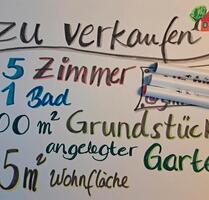 zu verkaufen
5 Zimmer
1 Bad
00 m² Grundstück
angelegter Garte
5 m² Wohnfläche